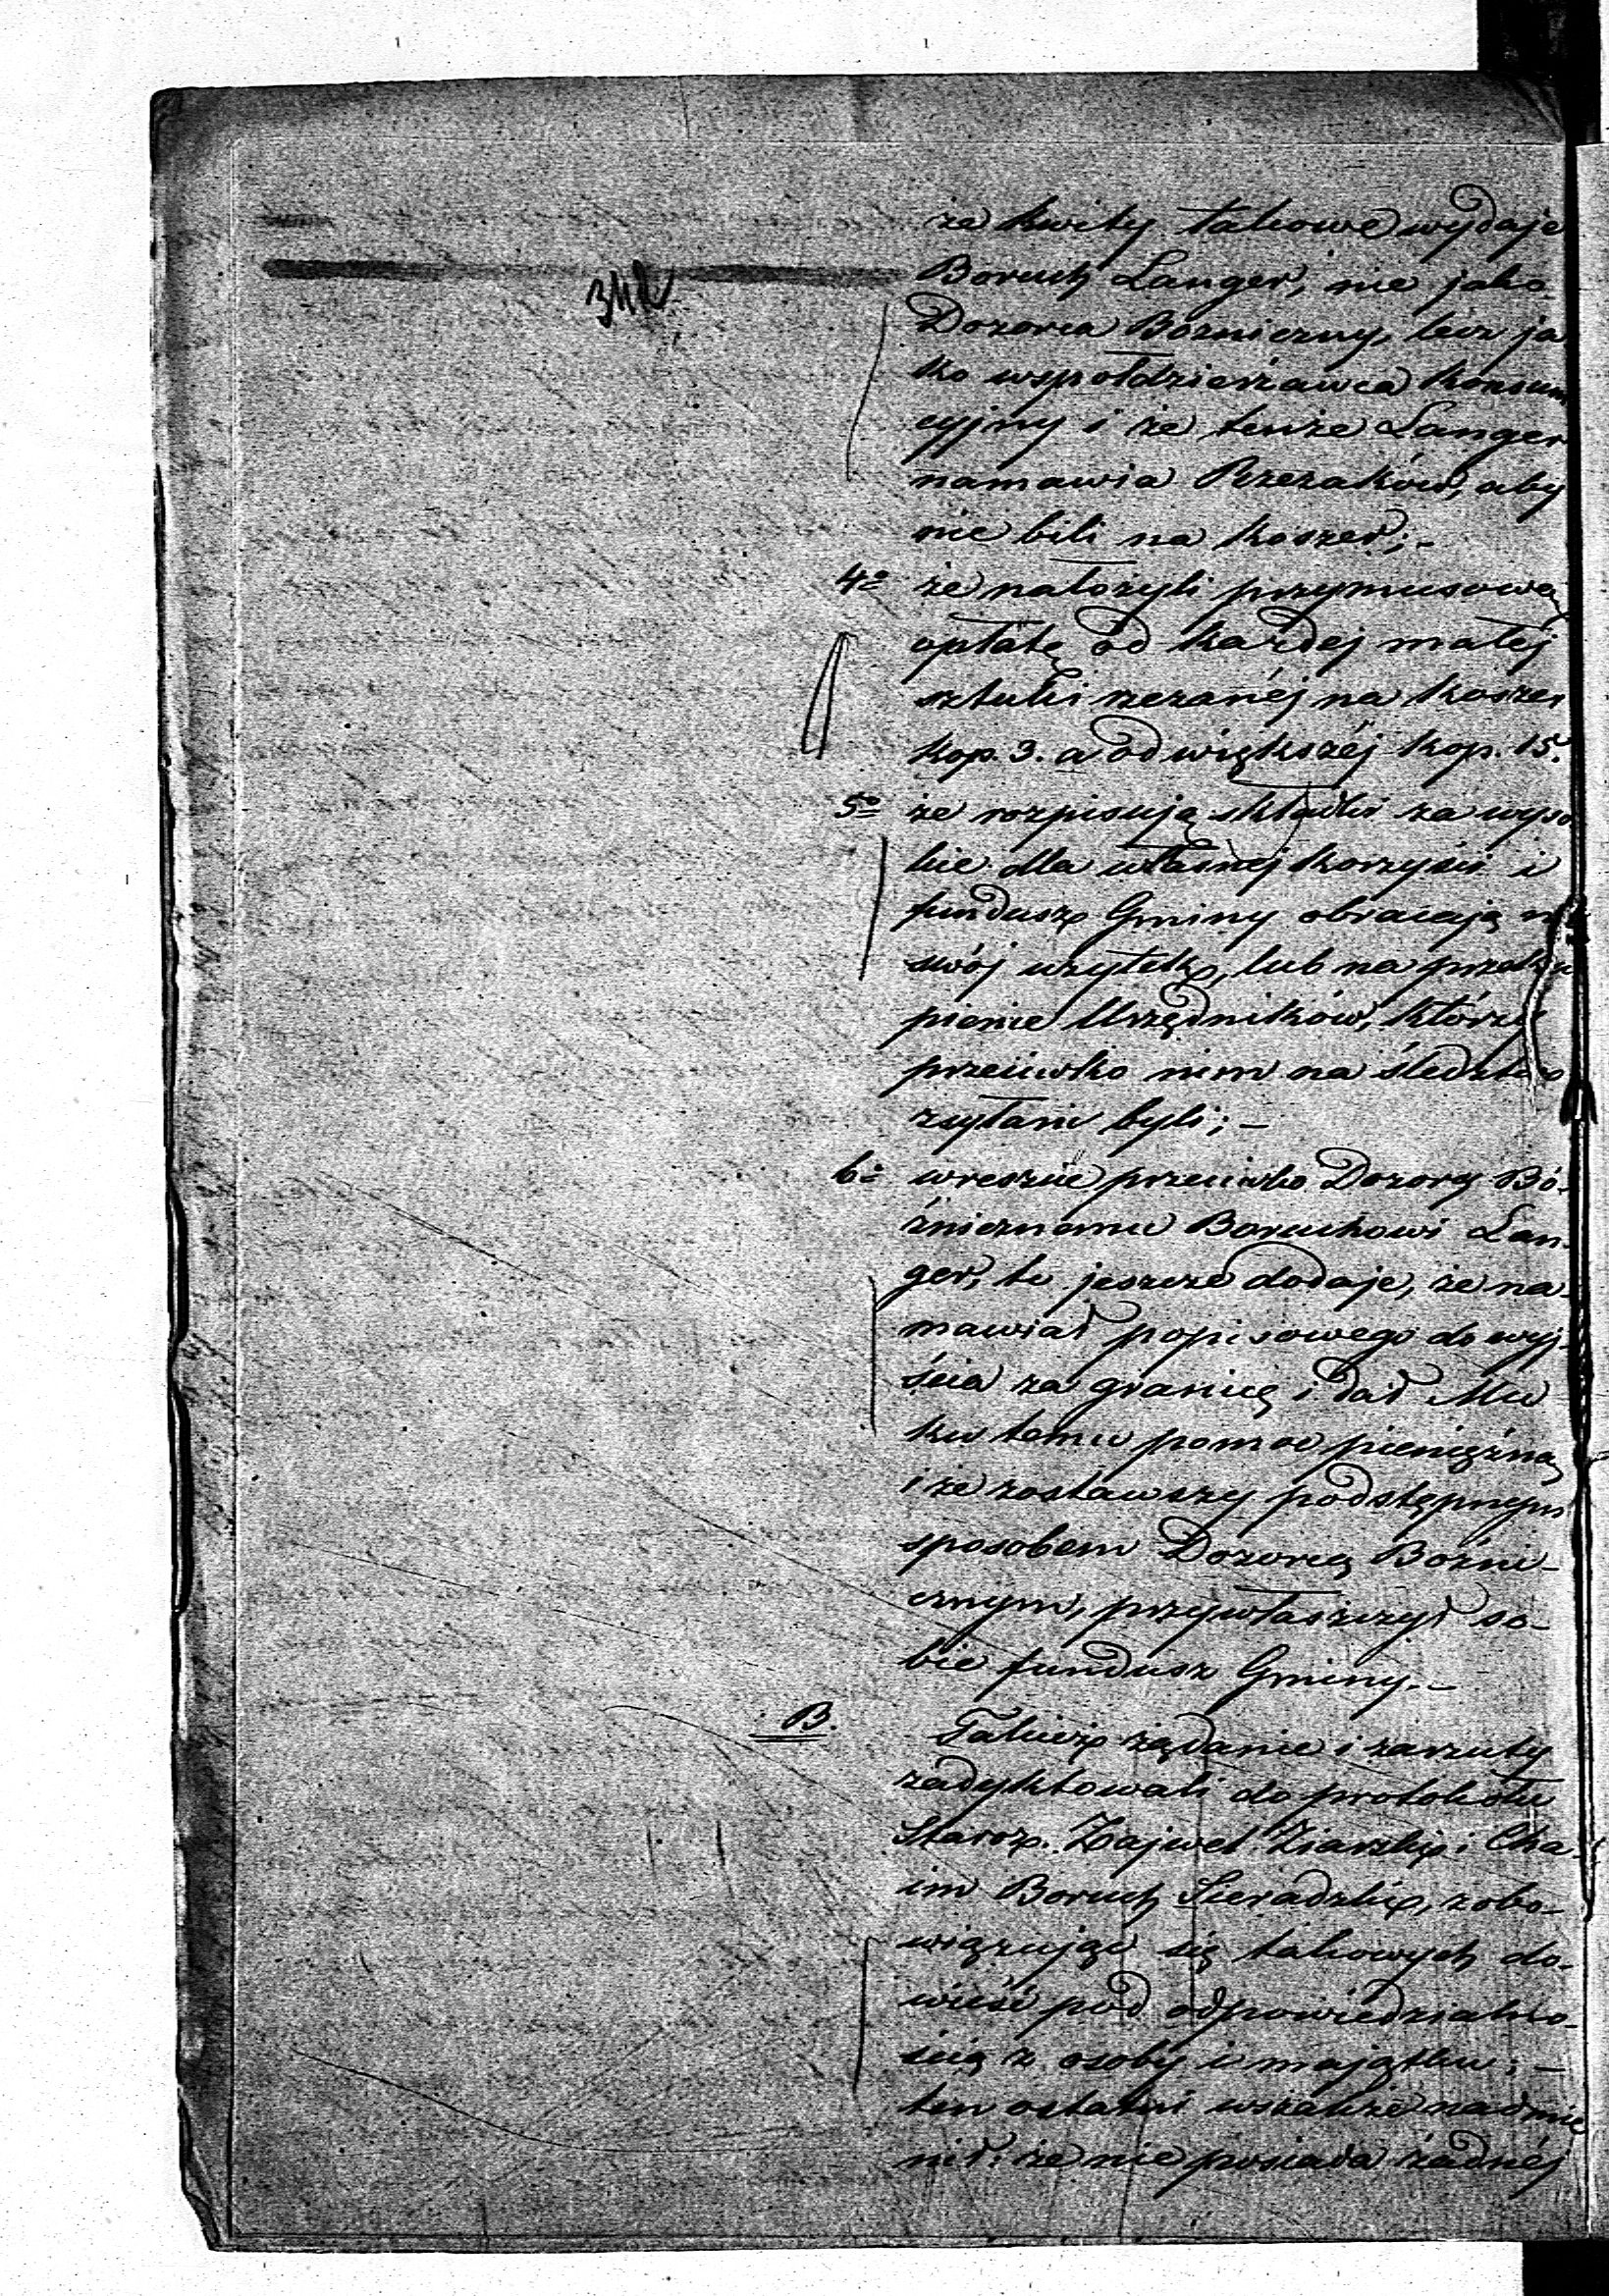 342
że kwity takowe wydaje
Boruch Langer, nie jako
Dozorca Bożniczny, lecz ja
ko współdzierżawca konsum
cyjny i że tenże Langer
namawia Rzezaków, aby
nie bili na koszer; -
4o że nałożyli przymusową
opłatę od każdej małéj
sztuki rzezanéj na koszer
kop. 3. a od większéj kop. 15.
5o że rozpisują składki za wyso
kie dla własnej korzyści i
fundusz Gminy obracają na
swój użytek, lub na przeku
pienie Urzędników, którzy
przeciwko nim na śledztwo
zsyłani byli; -
6o wreszcie przeciwko Dozorcy Bó-
źnicznemu Boruchowi Lan-
ger, tu jeszcze dodaje, że na-
mawiał popisowego do wyj-
ścia za granicę i dał Mu
ku temu pomoc pieniężną
i że zostawszy podstępnym
sposobem Dozorcą Bożni-
cznym, przywłaszczył so-
bie fundusz Gminy. -
B. Takież żądanie i zarzuty
zadyktowali do protokółu
Staroz. Zajwel Ziarski i Cha-
im Boruch Sieradzki, zobo-
wiązując się takowych do-
wieść pod odpowiedzialno-
ścią z osoby i majątku; -
ten ostatni wszakże nadmie
nił: że nie posiada żadnéj